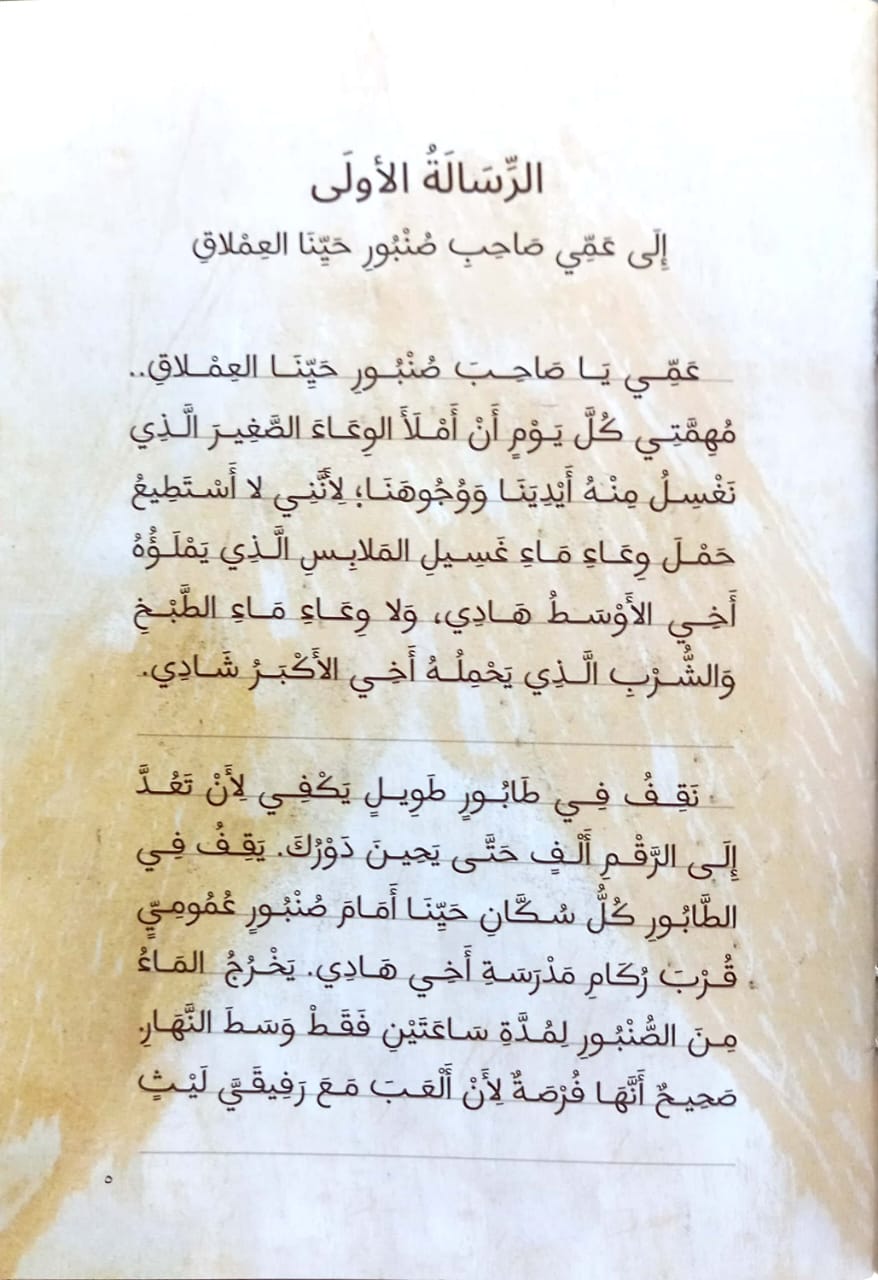 الرِّسَالَةُ الأولَى
إِلَى عَمِّي صَاحِبِ صُنْبُورِ حَيِّنَا العِمْلاقِ
عَمِّي يَا صَاحِبَ صُنْبُورِ حَيِّنَا العِمْلاقِ..
مُهِمَّتِي كُلَّ يَوْمٍ أَنْ أَمْلَأَ الوِعَاءَ الصَّغِيرَ الَّذِي
نَغْسِلُ مِنْهُ أَيْدِيَنَا وَوُجُوهَنَا؛ لِأَنَّنِي لا أَسْتَطِيعُ
حَمْلَ وِعَاءِ مَاءِ غَسِيلِ المَلابِسِ الَّذِي يَمْلَؤُهُ
أَخِي الأَوْسَطُ هَادِي، وَلا وِعَاءِ مَاءِ الطَّبْخِ
وَالشُّرْبِ الَّذِي يَحْمِلُهُ أَخِي الأَكْبَرُ شَادِي.
نَقِفُ فِي طَابُورٍ طَوِيلٍ يَكْفِي لِأَنْ تَعُدَّ
إِلَى الرَّقْمِ أَلْفٍ حَتَّى يَحِينَ دَوْرُكَ. يَقِفُ فِي
الطَّابُورِ كُلُّ سُكَّانِ حَيِّنَا أَمَامَ صُنْبُورٍ عُمُومِيٍّ
قُرْبَ رُكَامِ مَدْرَسَةِ أَخِي هَادِي. يَخْرُجُ المَاءُ
مِنَ الصُّنْبُورِ لِمُدَّةِ سَاعَتَيْنِ فَقَطْ وَسَطَ النَّهَارِ.
صَحِيحٌ أَنَّهَا فُرْصَةٌ لِأَنْ أَلْعَبَ مَعَ رَفِيقَيَّ لَيْثٍ
٥